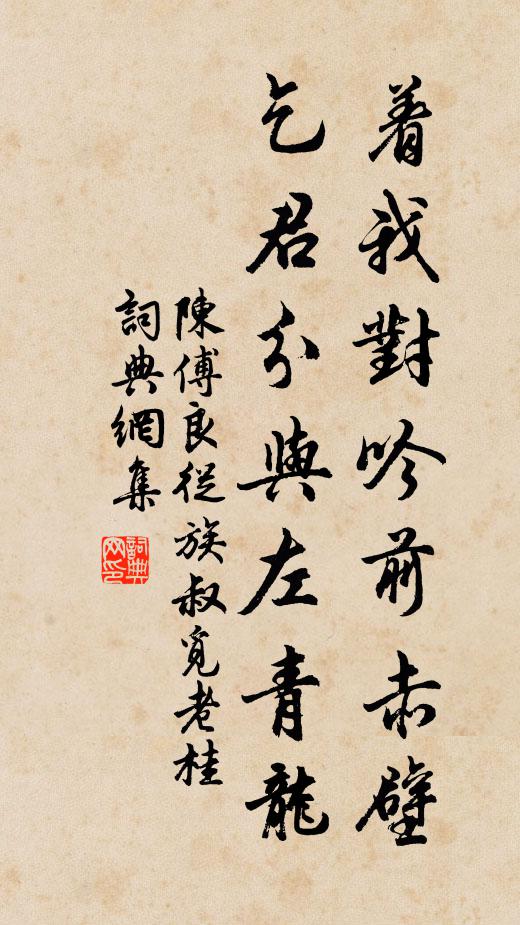 着我對吟前赤壁
乞君分與左青龍
陳傅良從族叔覓老桂
詞典網集
詞典網印